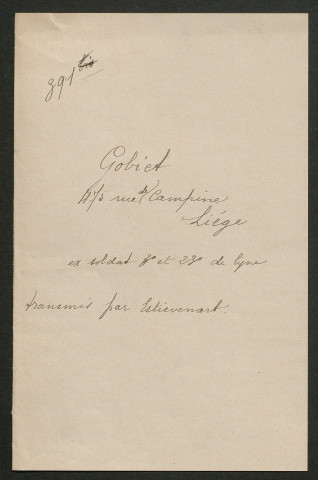 891 bis
Gobiet
rue de Campine
Liége
ex soldat et 23e de lgne
transmis par Estievenart.